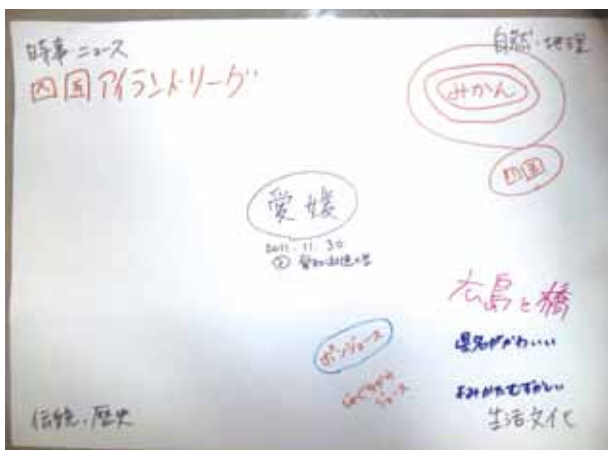 時事・ニュース
四国アイランドリーグ
自然・地理
みかん
四国
愛媛
2011.11.30
広島と橋
ポンジュース
県名がかわいい
よみかたむずかしい
伝統・歴史
生活文化